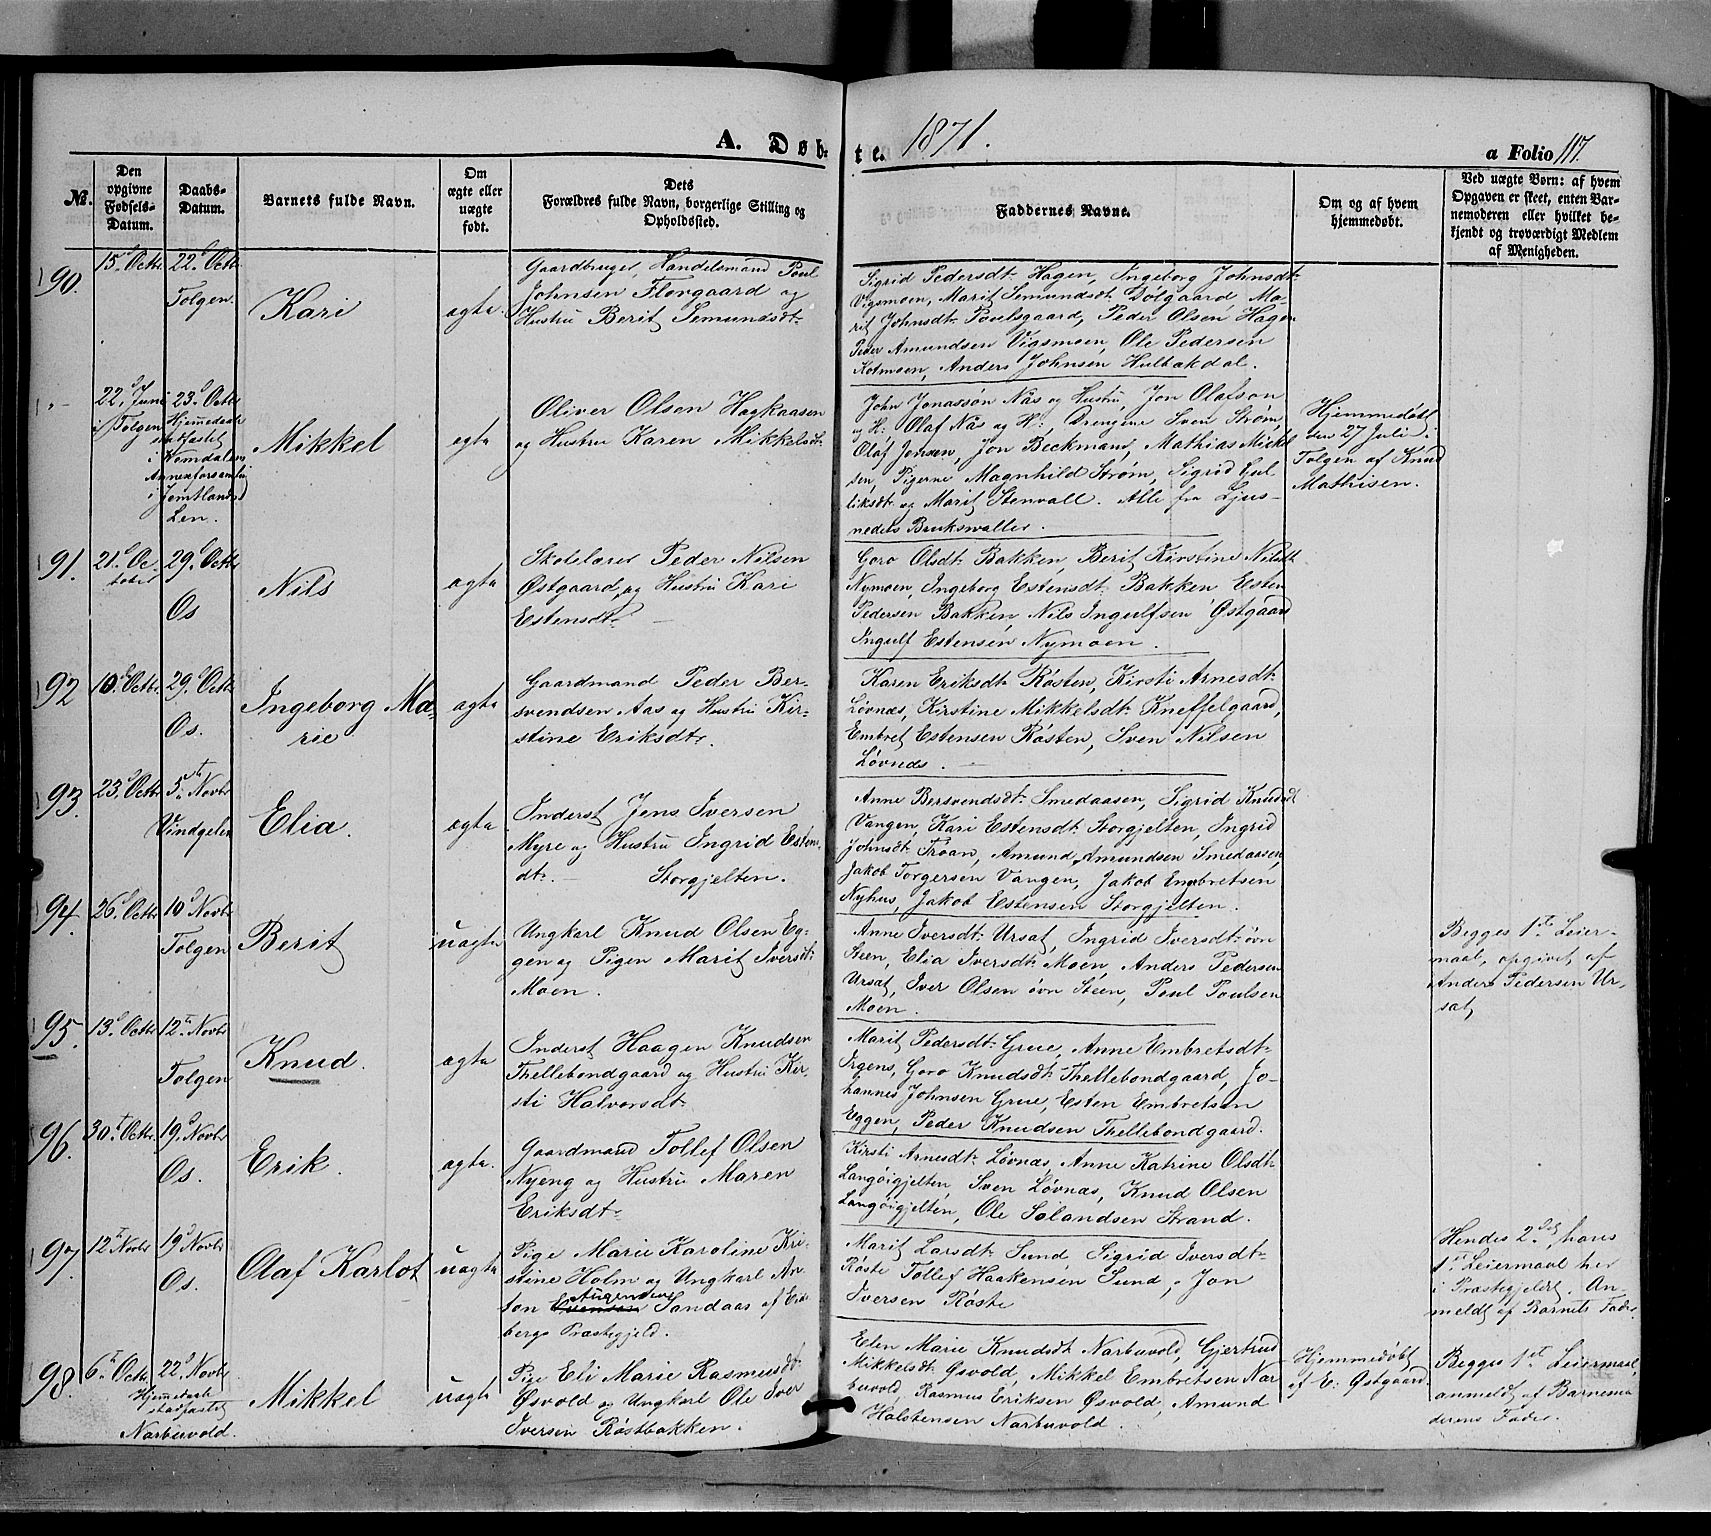 A. Døb-
te. 1871.
a Folio 117.
No.
Den opgivne Fødsels-Datum.
Daabs-Datum.
Barnets fulde Navn.
Om ægte eller uægte født.
Dets Forældres fulde Navn, borgerlige Stilling og Opholdssted.
Faddernes Navne.
Om og af hvem hjemmedøbt.
Ved uægte Børn: af hvem Opgaven er skeet, enten Barnemoderen eller hvilket bekjendt og troværdigt Medlem af Menigheden.
90.
15. Octbr
22. Octbr
Tolgen.
Kari
ægte.
Gaardbruger, Handelsmand Poul
Johnsen Florgaard og
Hustru Berit Semundsdt.
Sigrid Pedersdt. Hagen, Ingeborg Johnsdt.
Vigsmoen, Marit Semundsdt. Dølgaard, Ma-
rit Johnsdt. Poulsgaard, Peder Olsen Hagen
Peder Amundsen Vigsmoen, Ole Pedersen
Kotmoen, Anders Johnsen Hulbækdal.
22. Juni
i Tolgen
23. Octbr
Hjemmedaab
stadfæstet
i
Annexforsamling
i Jemtlands
Len.
Mikkel
ægte
Oliver Olsen Hagkaasen
og Hustru Karen Mikkelsdt.
John Jonassøn Nås og Hustru, Jon Olafson
og H: Olaf Nås og H:, Drengene Sven Strøm,
Olaf Jonsen, Jon Beckman, Mathias Mickel
sen, Pigerne Magnhild Strøm, Sigrid Gul-
liksdt. og Marit Stenvall. Alle fra Ljus-
nedels Bruksvaller.
Hjemmedøbt
den 27 Juli i
Tolgen af Knud
Mathisen.
91.
21. Oc-
tober
29. Octbr
Os
Nils
ægte
Skolelærer Peder Nilsen
Østgaard, og Hustru Kari
Estensdt.
Goro Olsdt. Bakken, Berit Kirstine Nilsdt.
Nymoen, Ingeborg Estensdt. Bakken Esten
Pedersen Bakken, Nils Ingulfsen Østgaard
Ingulf Estensen Nymoen.
92
10. Octbr.
29. Octbr
Os.
Ingeborg Ma-
rie
ægte
Gaardmand Peder Ber-
svendsen Aas og Hustru Kir-
stine Eriksdt.
Karen Eriksdt. Røsten, Kirsti Arnesdt.
Løvnæs, Kirstine Mikkelsdt. Kneffelgaard,
Embret Estensen Røsten, Sven Nilsen
Løvnæs.
93.
23. Octbr
5te Novbr
Vindgelen
Elia.
ægte
Inderst Jens Iversen
Myre og Hustru Ingrid Esten-
dt. Storgjelten.
Anne Bersvendsdt. Smedaasen, Sigrid Knudsdt
Vangen, Kari Estensdt. Storgjelten, Ingrid
Johnsdt. Trøan, Amund Amundsen Smedaasen,
Jakob Torgersen Vangen, Jakob Embretsen
Nyhus, Jakob Estensen Storgjelten.
94.
26. Octbr
10. Novbr
Tolgen
Berit
uægte
Ungkarl Knud Olsen Eg-
gen og Pigen Marit Iversdt.
Moen.
Anne Iversdt. Ursat, Ingrid Iversdt. øvn
Steen, Elia Iversdt. Moen, Anders Pedersen
Ursat, Iver Olsen øvn Steen, Poul Poulsen
Moen.
Begges 1ste Leier-
maal, opgivet af
Anders Pedersen Ur-
sat,
95.
13. Octbr
12te Novbr
Tolgen
Knud.
ægte
Inderst Haagen Knudsen
Thellebondgaard og Hustru Kir-
sti Halvorsdt.
Marit Pedersdt. Grue, Anne Embretsdt.
Irgens, Goro Knudsdt. Thellebondgaard, Jo-
hannes Johnsen Grue, Esten Embretsen
Eggen, Peder Knudsen Thellebondgaard.
96.
30te Octbr.
19. Novbr
Os.
Erik.
ægte.
Gaardmand Tollef Olsen
Nyeng og Hustru Maren
Eriksdt.
Kirsti Arnesdt. Løvnæs, Anne Katrine Olsdt.
Langøigjelten, Sven Løvnæs, Knud Olsen
Langøigjelten, Ole Salandsen Strand.
97.
12te Novbr
19. Novbr
Os.
Olaf Karlot
uægte
Pige Marie Karoline Kri-
stine Holm og Ungkarl An-
ton Sandaas af Eids-
bergs Præstegjeld.
Marit Larsdt. Sund, Sigrid Iversdt.
Røste Tollef Haakensen Sund, Jon
Iversen Røste
Hendes 2det, hans
1ste Leiermaal her
i Præstegjeldet. An-
meldt af Barnets Fader.
98.
6te Octbr
22. Novbr
Hjemmedaab
stadfæstet
Narbuvold.
Mikkel
uægte
Pige Eli Marie Rasmusdt.
Øsvold og Ungkarl Ole Iver
Iversen Røstbakken.
Elen Marie Knudsdt Narbuvold, Gjertrud
Mikkelsdt. Øsvold, Mikkel Embretsen Nar
buvold, Rasmus Eriksen Øsvold, Amund
Halstensen Narbuvold.
Hjemmedøbt
af E. Østgaard.
Begges 1ste Leiermaal,
anmeldt af Barnemo
derens Fader.